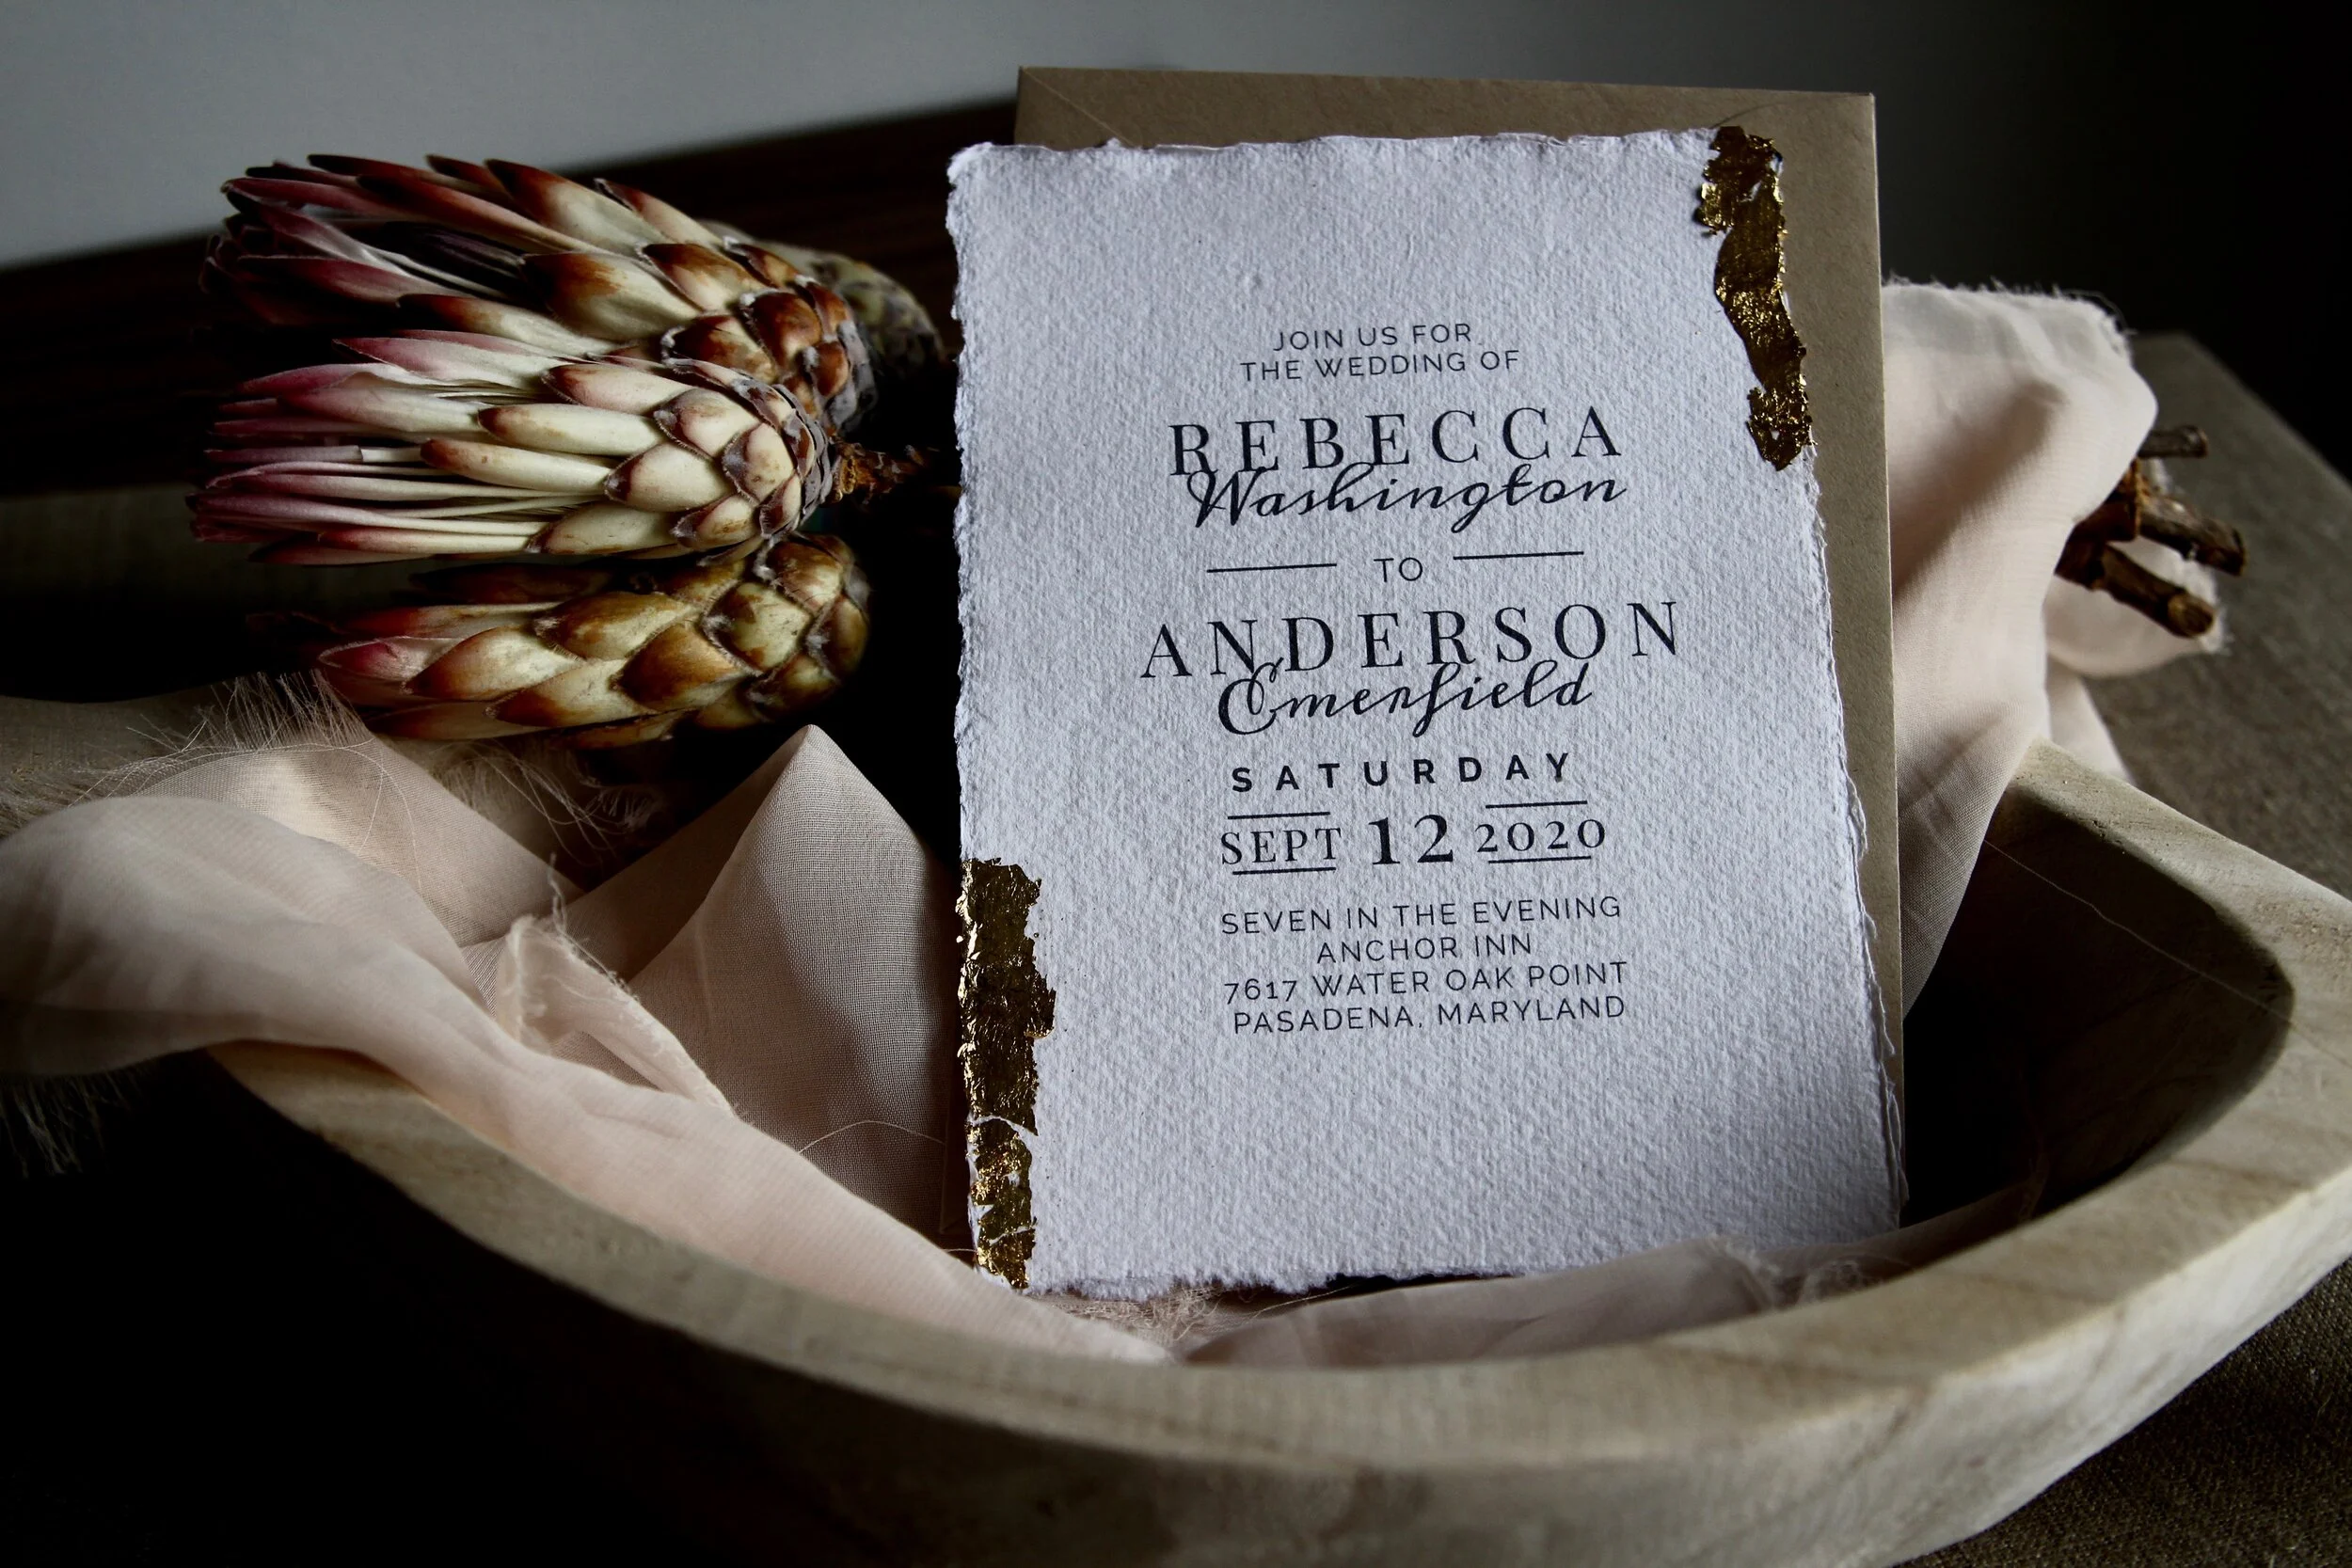 JOIN US FOR
THE WEDDING OF
REBECCA
Washington
TO
ANDERSON
Emerfield
SATURDAY
SEPT 12 2020
SEVEN IN THE EVENING
ANCHOR INN
7617 WATER OAK POINT
PASADENA, MARYLAND